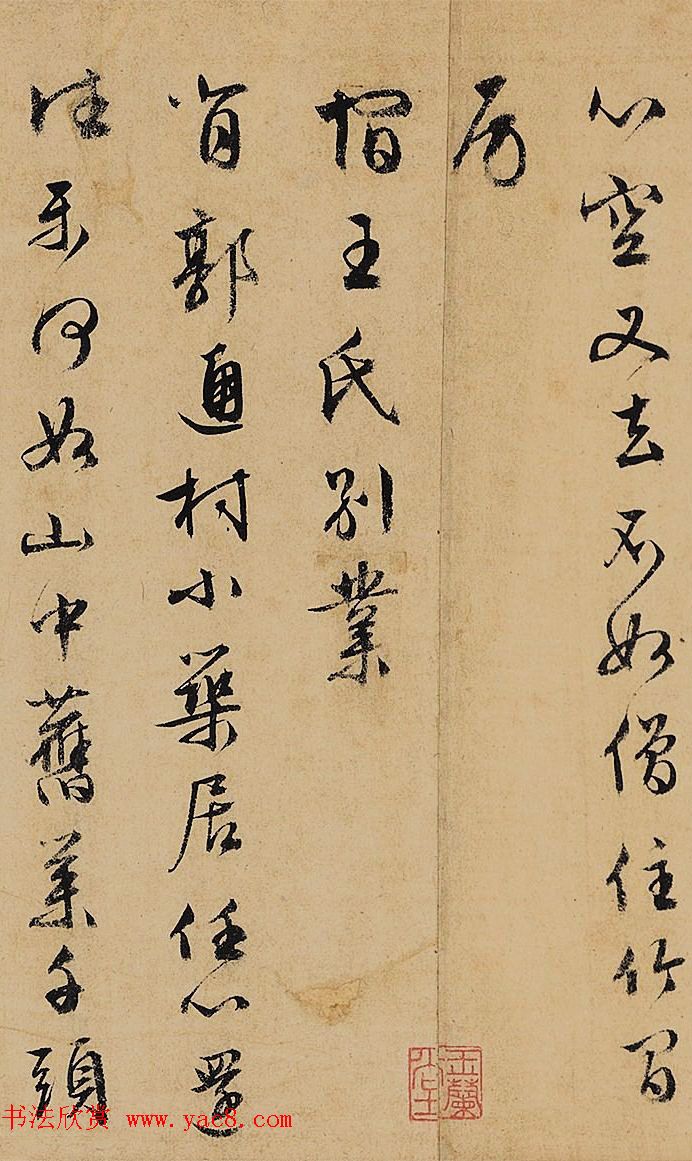 心空又去不如僧住竹間
房
王氏別業
背郭通村小築居任心還
往樂何如山中舊業千頭
玉蘭堂
书法欣赏 www.yac8.com